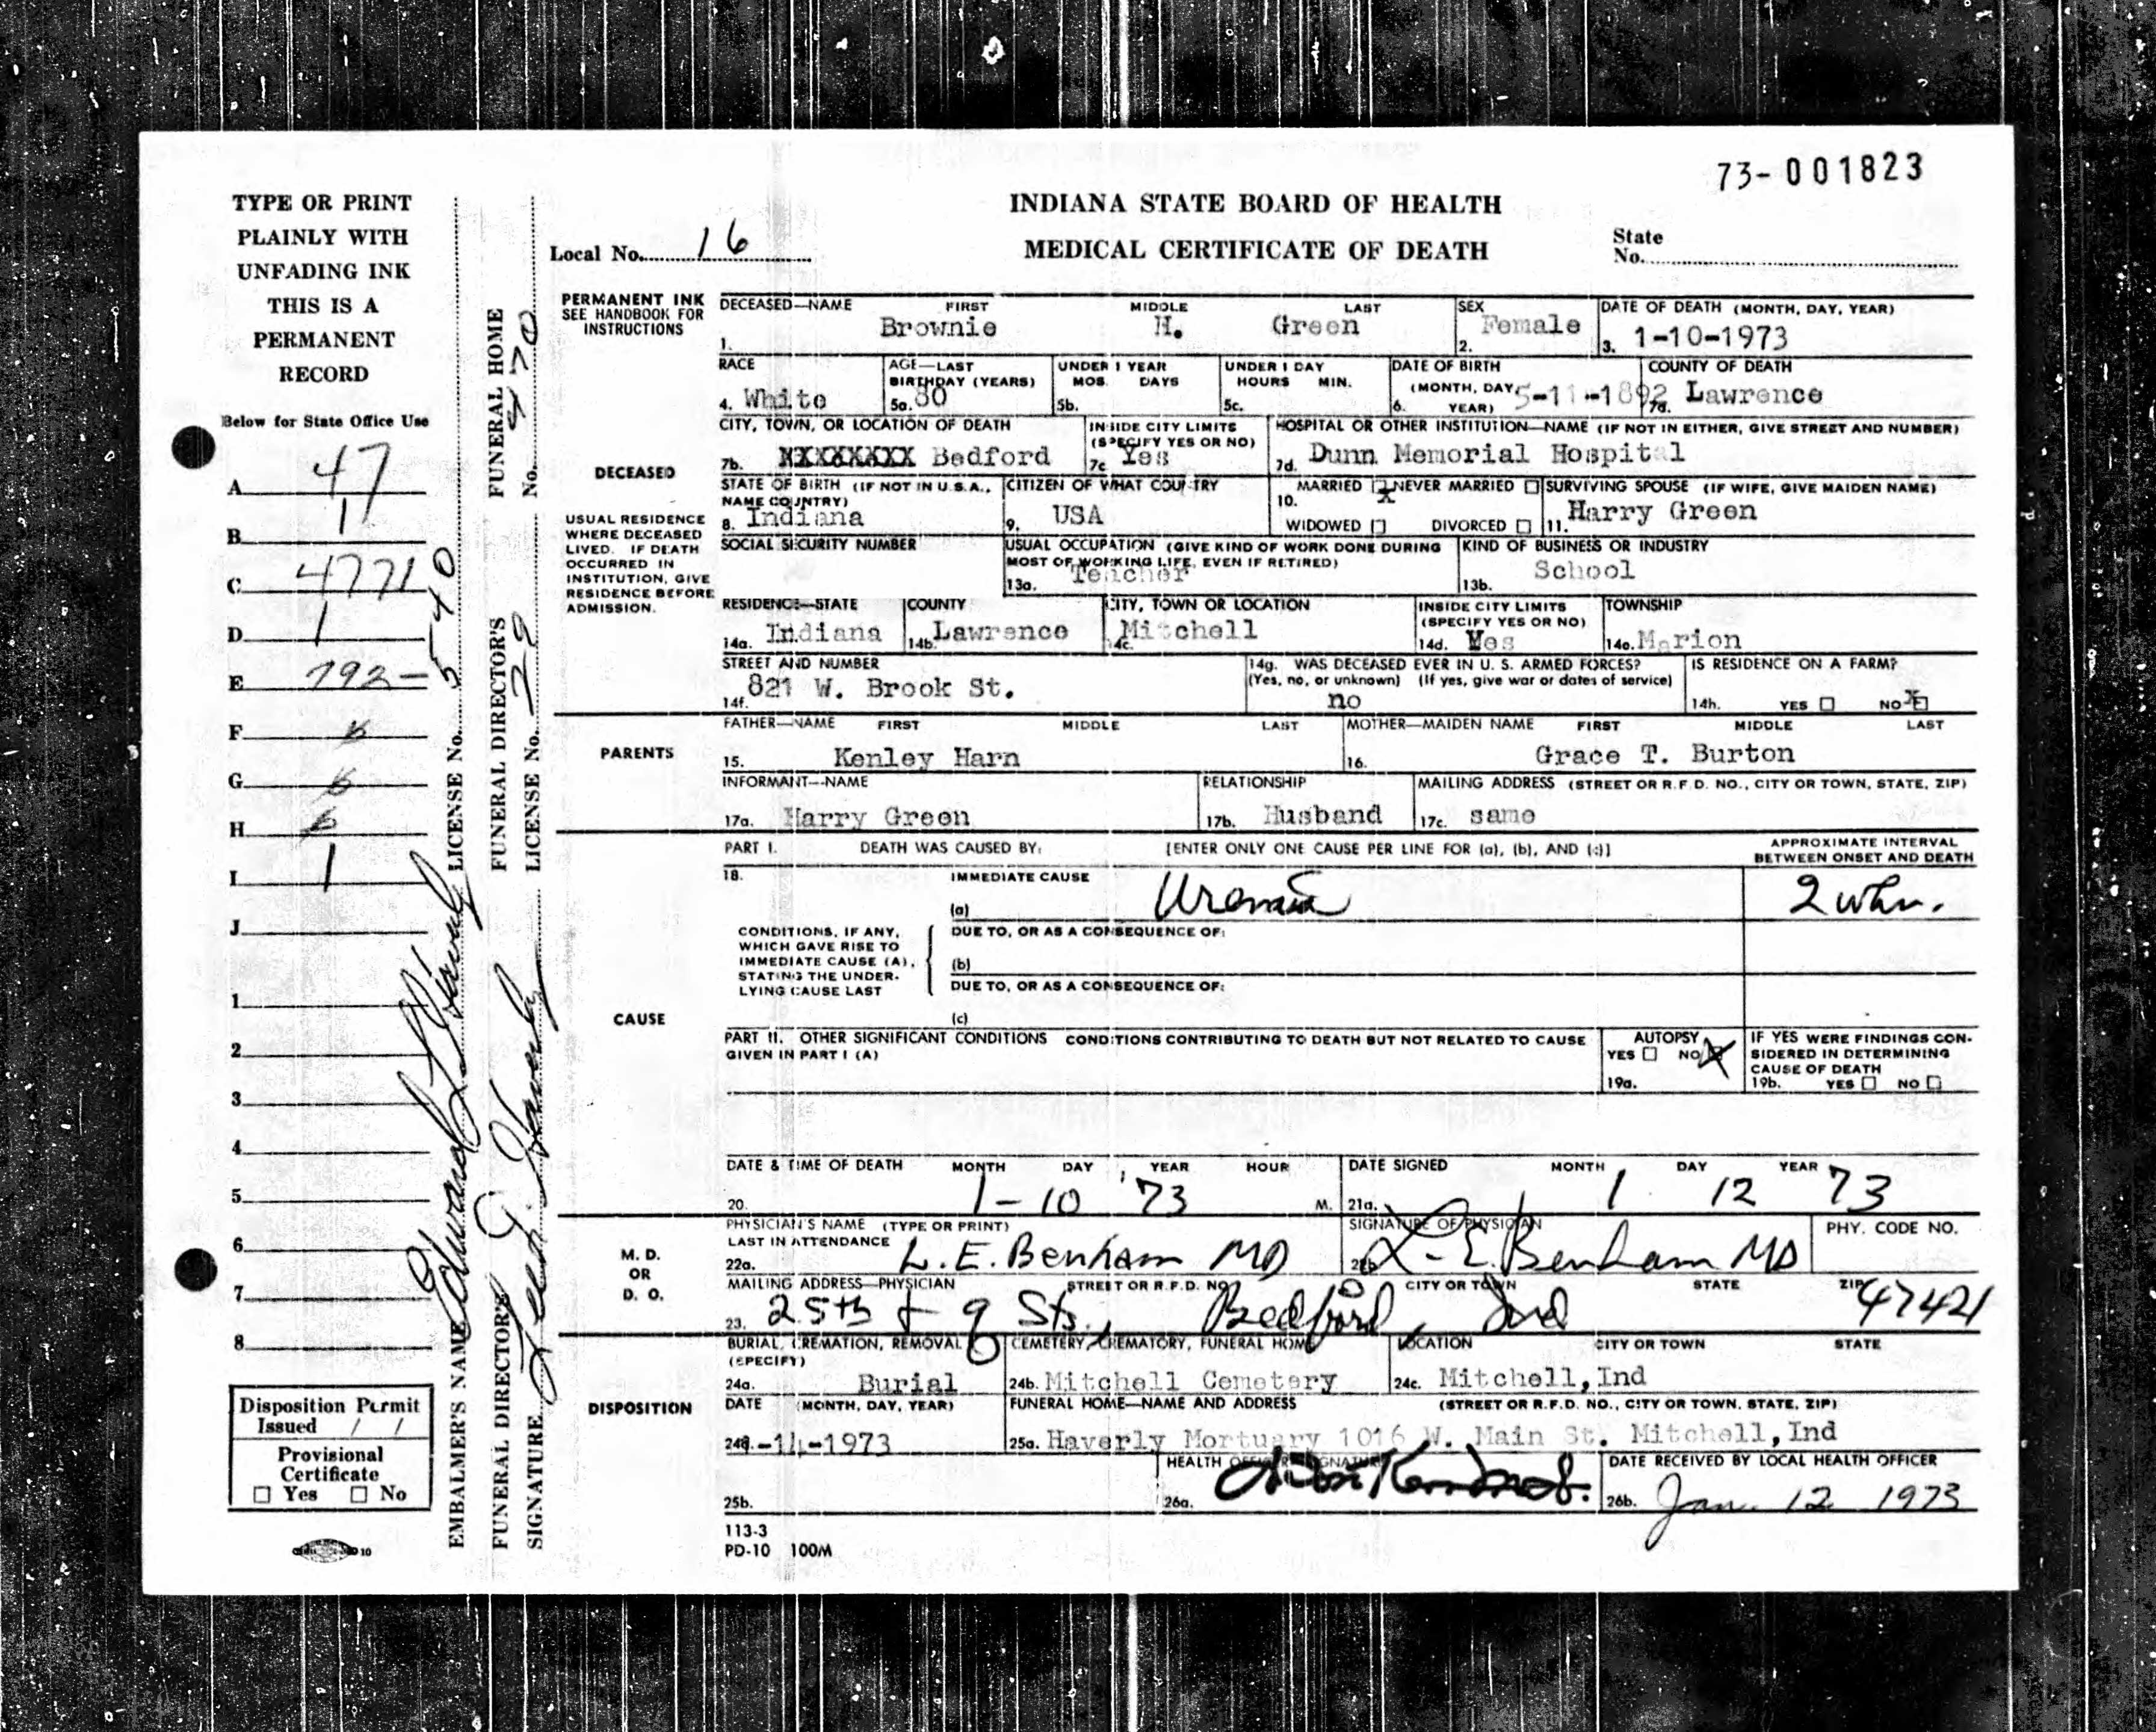 73-001823
TYPE OR PRINT
PLAINLY WITH
UNFADING INK
THIS IS A
PERMANENT
RECORD
Below for State Office Use
A 47
B 1
C 47710
D 1
E 792-
F 6
G 6
H 6
I 1
J
1
2
3
4
5
6
7
8
Disposition Permit
Issued / /
Provisional
Certificate
☐ Yes ☐ No
10
EMBALMER'S NAME LICENSE No. 5540
FUNERAL DIRECTOR'S SIGNATURE
FUNERAL DIRECTOR'S LICENSE No. 29
FUNERAL HOME No. 470
INDIANA STATE BOARD OF HEALTH
Local No. 16 MEDICAL CERTIFICATE OF DEATH State No.
PERMANENT INK
SEE HANDBOOK FOR
INSTRUCTIONS
DECEASED—NAME FIRST MIDDLE LAST SEX DATE OF DEATH (MONTH, DAY, YEAR)
1. Brownie H. Green 2. Female 3. 1-10-1973
RACE AGE—LAST BIRTHDAY (YEARS) UNDER 1 YEAR MOS. DAYS UNDER 1 DAY HOURS MIN. DATE OF BIRTH (MONTH, DAY, YEAR) COUNTY OF DEATH
4. White 5a. 80 5b. 5c. 6. 5-11-1892 7a. Lawrence
CITY, TOWN, OR LOCATION OF DEATH INSIDE CITY LIMITS (SPECIFY YES OR NO) HOSPITAL OR OTHER INSTITUTION—NAME (IF NOT IN EITHER, GIVE STREET AND NUMBER)
DECEASED
7b. XXXXXXXX Bedford 7c Yes 7d. Dunn Memorial Hospital
USUAL RESIDENCE
WHERE DECEASED
LIVED. IF DEATH
OCCURRED IN
INSTITUTION, GIVE
RESIDENCE BEFORE
ADMISSION.
STATE OF BIRTH (IF NOT IN U.S.A., NAME COUNTRY) CITIZEN OF WHAT COUNTRY MARRIED ☒ NEVER MARRIED ☐ SURVIVING SPOUSE (IF WIFE, GIVE MAIDEN NAME)
8. Indiana 9. USA 10. WIDOWED ☐ DIVORCED ☐ 11. Harry Green
SOCIAL SECURITY NUMBER USUAL OCCUPATION (GIVE KIND OF WORK DONE DURING MOST OF WORKING LIFE, EVEN IF RETIRED) KIND OF BUSINESS OR INDUSTRY
13a. Teacher 13b. School
RESIDENCE—STATE COUNTY CITY, TOWN OR LOCATION INSIDE CITY LIMITS (SPECIFY YES OR NO) TOWNSHIP
14a. Indiana 14b. Lawrence 14c. Mitchell 14d. Yes 14e. Marion
STREET AND NUMBER 14g. WAS DECEASED EVER IN U. S. ARMED FORCES? (Yes, no, or unknown) (If yes, give war or dates of service) IS RESIDENCE ON A FARM?
14f. 821 W. Brook St. no 14h. YES ☐ NO ☒
PARENTS
FATHER—NAME FIRST MIDDLE LAST MOTHER—MAIDEN NAME FIRST MIDDLE LAST
15. Kenley Harn 16. Grace T. Burton
INFORMANT—NAME RELATIONSHIP MAILING ADDRESS (STREET OR R.F.D. NO., CITY OR TOWN, STATE, ZIP)
17a. Harry Green 17b. Husband 17c. same
PART I. DEATH WAS CAUSED BY: [ENTER ONLY ONE CAUSE PER LINE FOR (a), (b), AND (c)] APPROXIMATE INTERVAL BETWEEN ONSET AND DEATH
18. IMMEDIATE CAUSE
(a) Uremia 2 wks.
CAUSE
CONDITIONS, IF ANY,
WHICH GAVE RISE TO
IMMEDIATE CAUSE (A),
STATING THE UNDER-
LYING CAUSE LAST
DUE TO, OR AS A CONSEQUENCE OF:
(b)
DUE TO, OR AS A CONSEQUENCE OF:
(c)
PART II. OTHER SIGNIFICANT CONDITIONS CONDITIONS CONTRIBUTING TO DEATH BUT NOT RELATED TO CAUSE GIVEN IN PART I (A)
AUTOPSY YES ☐ NO ☒ 19a.
IF YES WERE FINDINGS CONSIDERED IN DETERMINING CAUSE OF DEATH 19b. YES ☐ NO ☐
DATE & TIME OF DEATH MONTH DAY YEAR HOUR DATE SIGNED MONTH DAY YEAR
20. 1-10 '73 M. 21a. 1 12 73
M. D.
OR
D. O.
PHYSICIAN'S NAME (TYPE OR PRINT) LAST IN ATTENDANCE SIGNATURE OF PHYSICIAN PHY. CODE NO.
22a. L. E. Benham MD 22b. L. E. Benham MD
MAILING ADDRESS—PHYSICIAN STREET OR R.F.D. NO. CITY OR TOWN STATE ZIP
23. 25th & Q Sts., Bedford, Ind 47421
DISPOSITION
BURIAL, CREMATION, REMOVAL (SPECIFY) CEMETERY, CREMATORY, FUNERAL HOME LOCATION CITY OR TOWN STATE
24a. Burial 24b. Mitchell Cemetery 24c. Mitchell,Ind
DATE (MONTH, DAY, YEAR) FUNERAL HOME—NAME AND ADDRESS (STREET OR R.F.D. NO., CITY OR TOWN, STATE, ZIP)
24d. 1-14-1973 25a. Haverly Mortuary 1016 W. Main St. Mitchell,Ind
HEALTH OFFICER SIGNATURE DATE RECEIVED BY LOCAL HEALTH OFFICER
25b. 26a. 26b. Jan. 12 1973
113-3
PD-10 100M